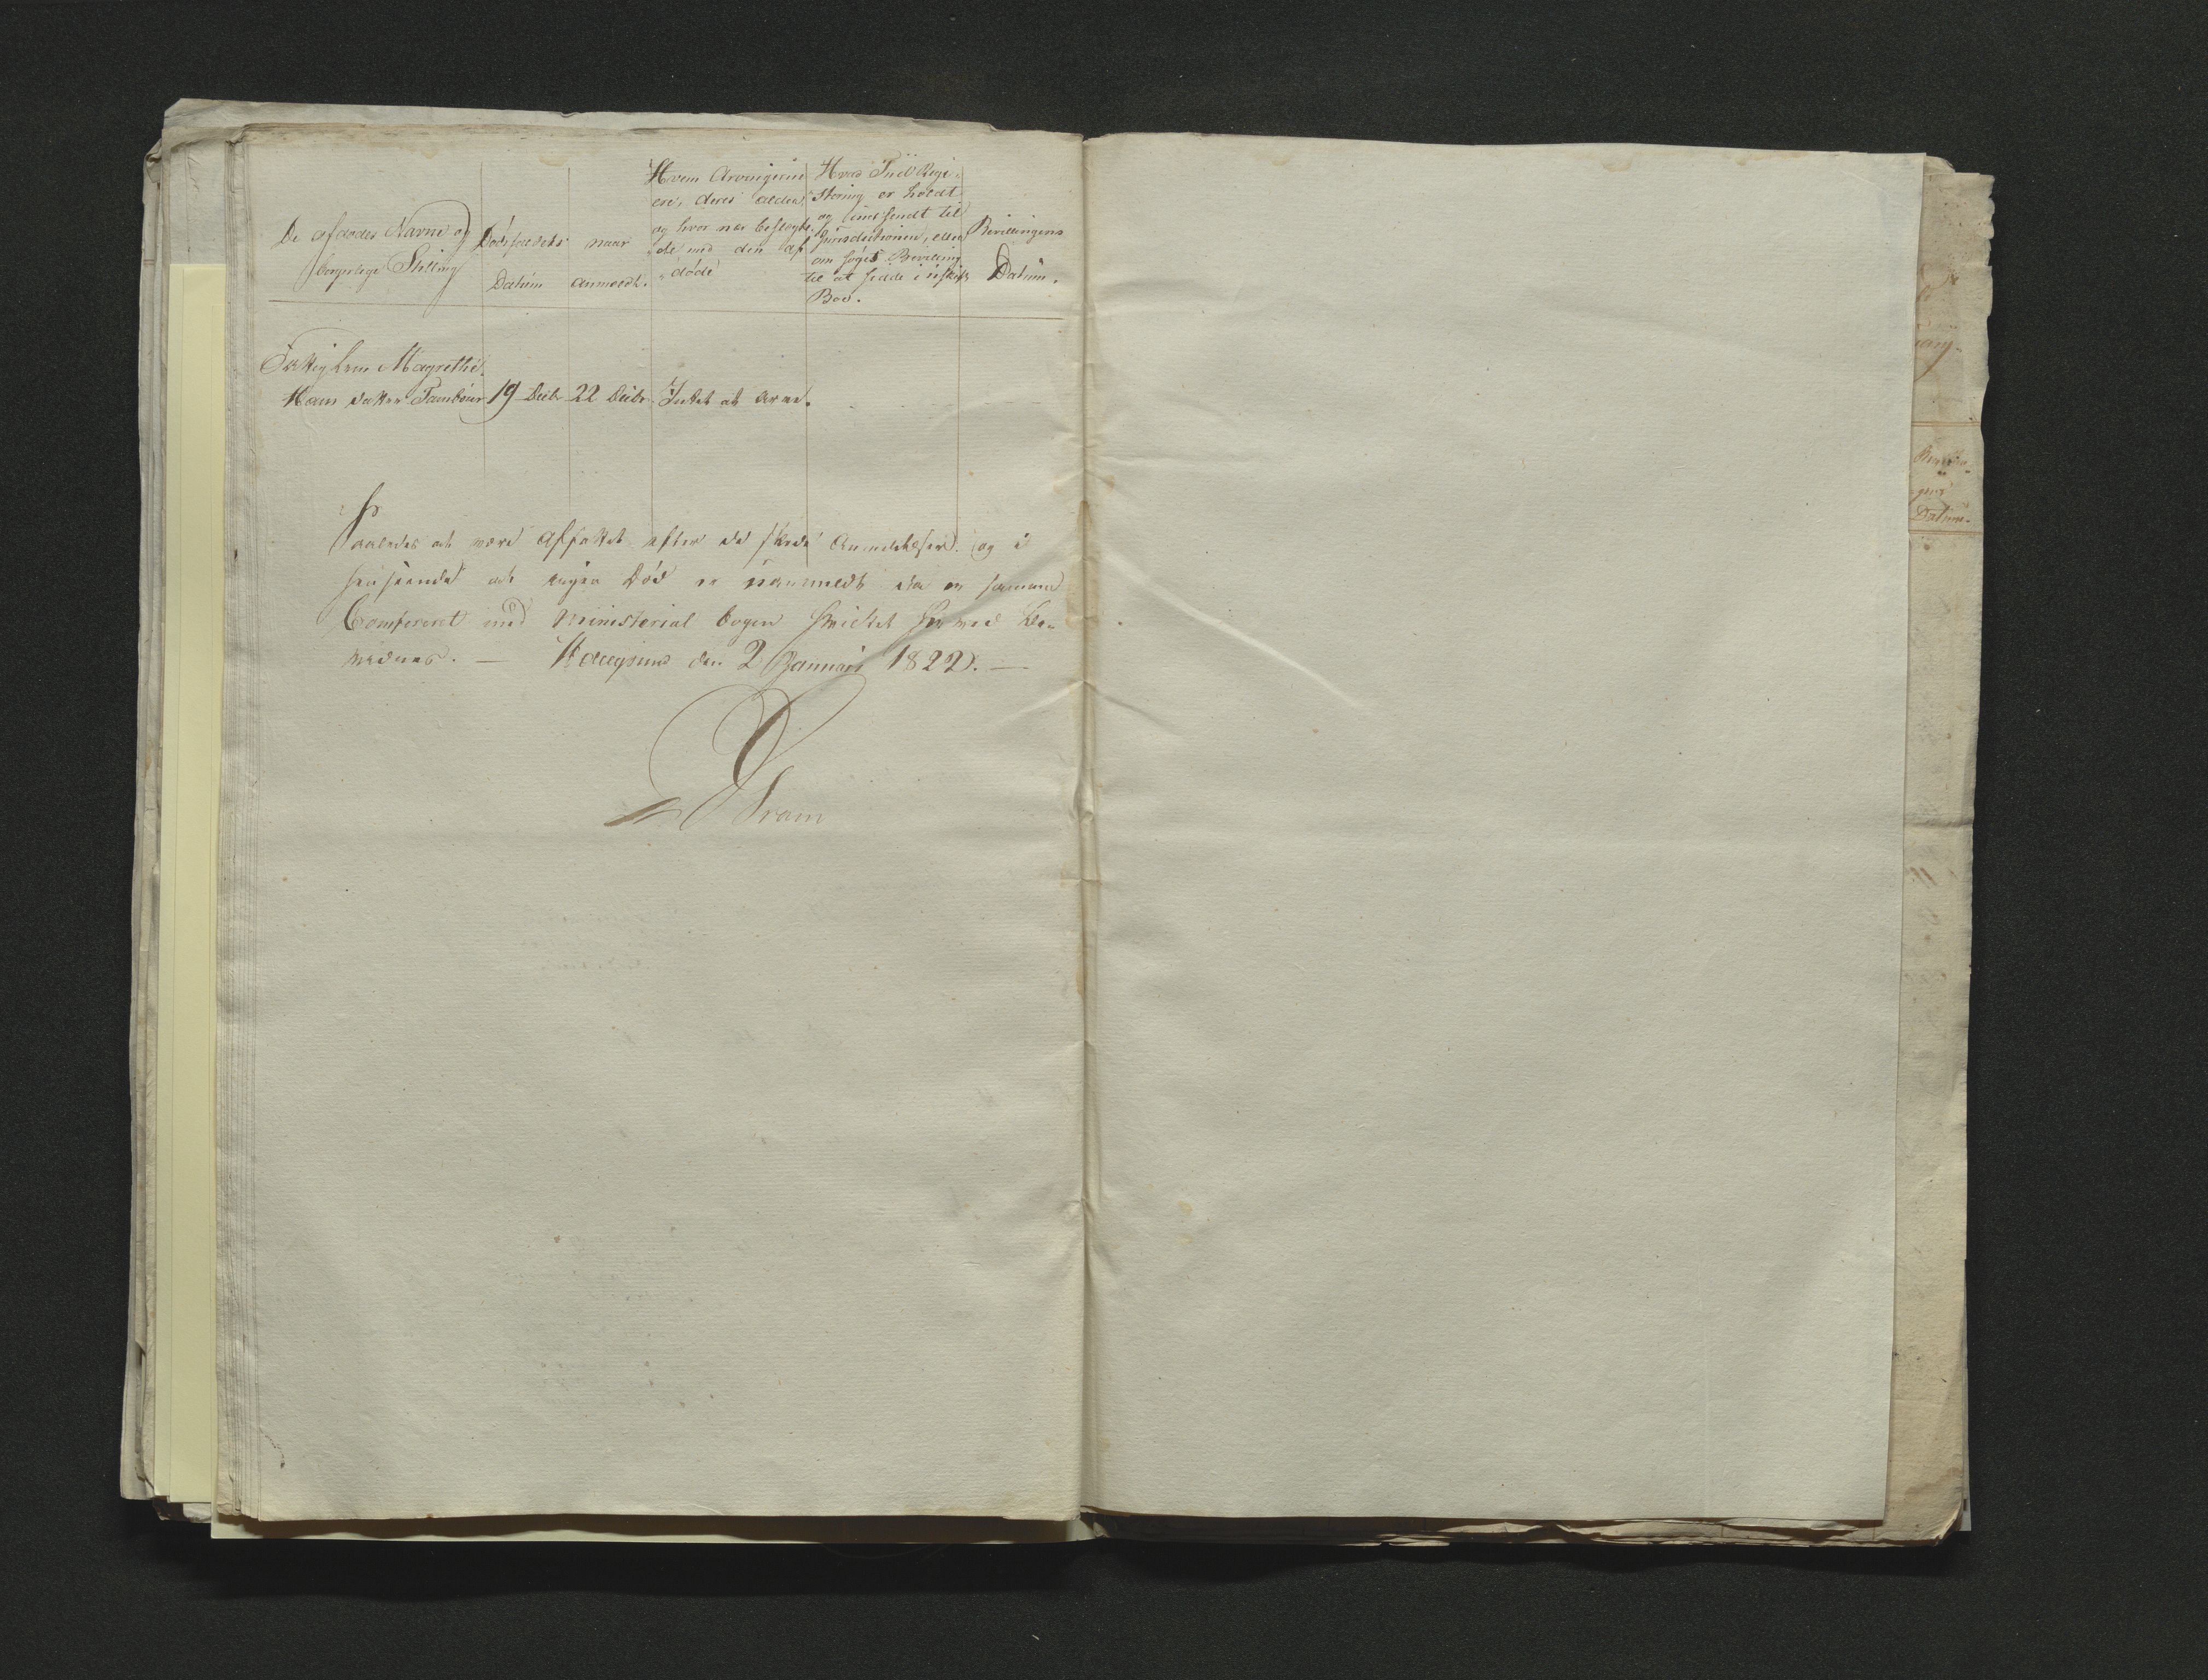 De afdødes Navne og
borgerlige Stilling
Dødsfaldets
Datum
naar
anmeldt.
Hvem Arvingerne
ere, deres alder,
og hvor nær beslægte-
de med den af-
døde
Hvad Tiid Regi-
stering er holdt
og indsendt til
Jurisdictionen, eller
om søges Bevilling
til at sidde i uskift
Boe.
Bevillingens
Datum.
Fattiglem Magrethe
Hans datter Tambour 19 Decbr 22 Decbr Intet at arve.
Saaledes at være Affattet efter de skede Anmeldelser og i
henseende at ingen Død er uanmeldt da er samme
Confereret med Ministerial bogen hvilket herved be-
vidnes. — den 2 Januar 1822. —
Fram
Datum.